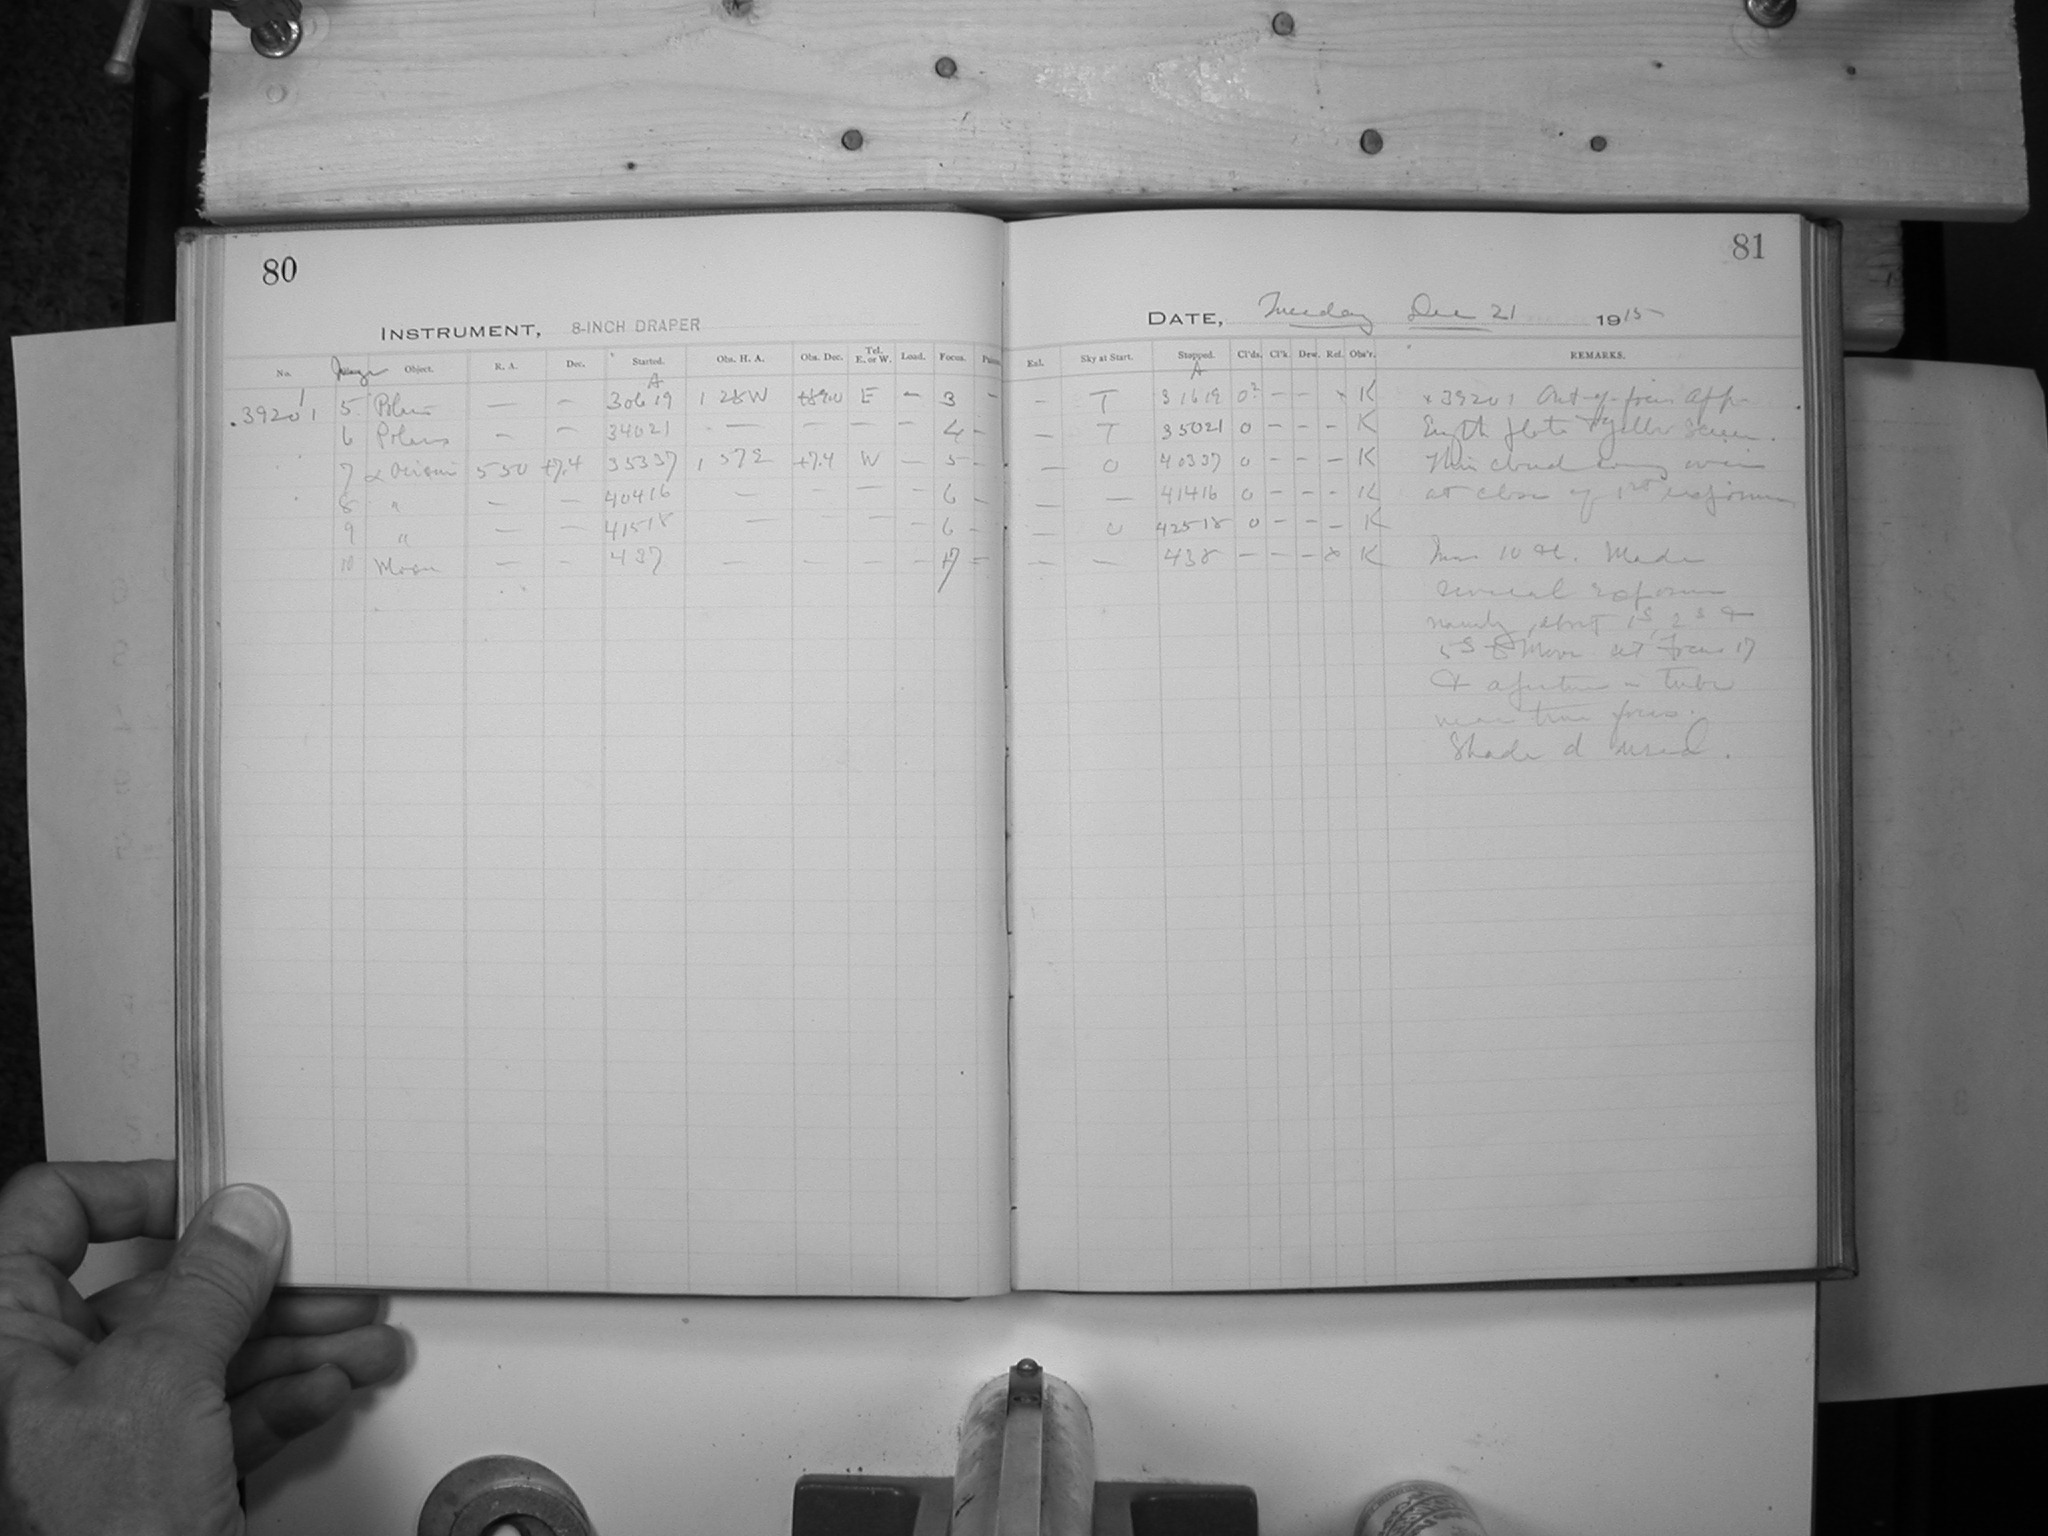 80
INSTRUMENT, 8-INCH DRAPER
No. Image Object. R. A. Dec. Started. Obs. H. A. Obs. Dec. Tel. E. or W. Load. Focus.
A
.39201 5 Polaris — — 3 06 19 1 28 W +89.0 E — 3 -
6 Polaris — — 34021 — — — — 4 -
7 α Orionis 5 50 +7.4 35337 1 57 E +7.4 W — 5 -
8 " — — 40416 — — — — 6 -
9 " — — 41518 — — — — 6 -
10 Moon — — 437 — — — — 17 -
81
DATE, Tuesday Dec 21 1915
Exl. Sky at Start. Stopped. Cl'ds. Cl'k. Dew. Ref. Obs'r. REMARKS.
A
— T 31619 0² - - x K x 39201 Out-of-focus App.
— T 35021 0 - - - K plate + Yellow Screen.
— 0 40337 0 - - - K Thin cloud coming over in
— — 41416 0 - - - K at close of 1st exposure
— 0 42518 0 - - - K
— — 438 - - - x K 10 Made
several exposures
namely, about 1s, 2s &
5s Moon at Focus 17
& aperture in tube
near true focus.
Shade d used.